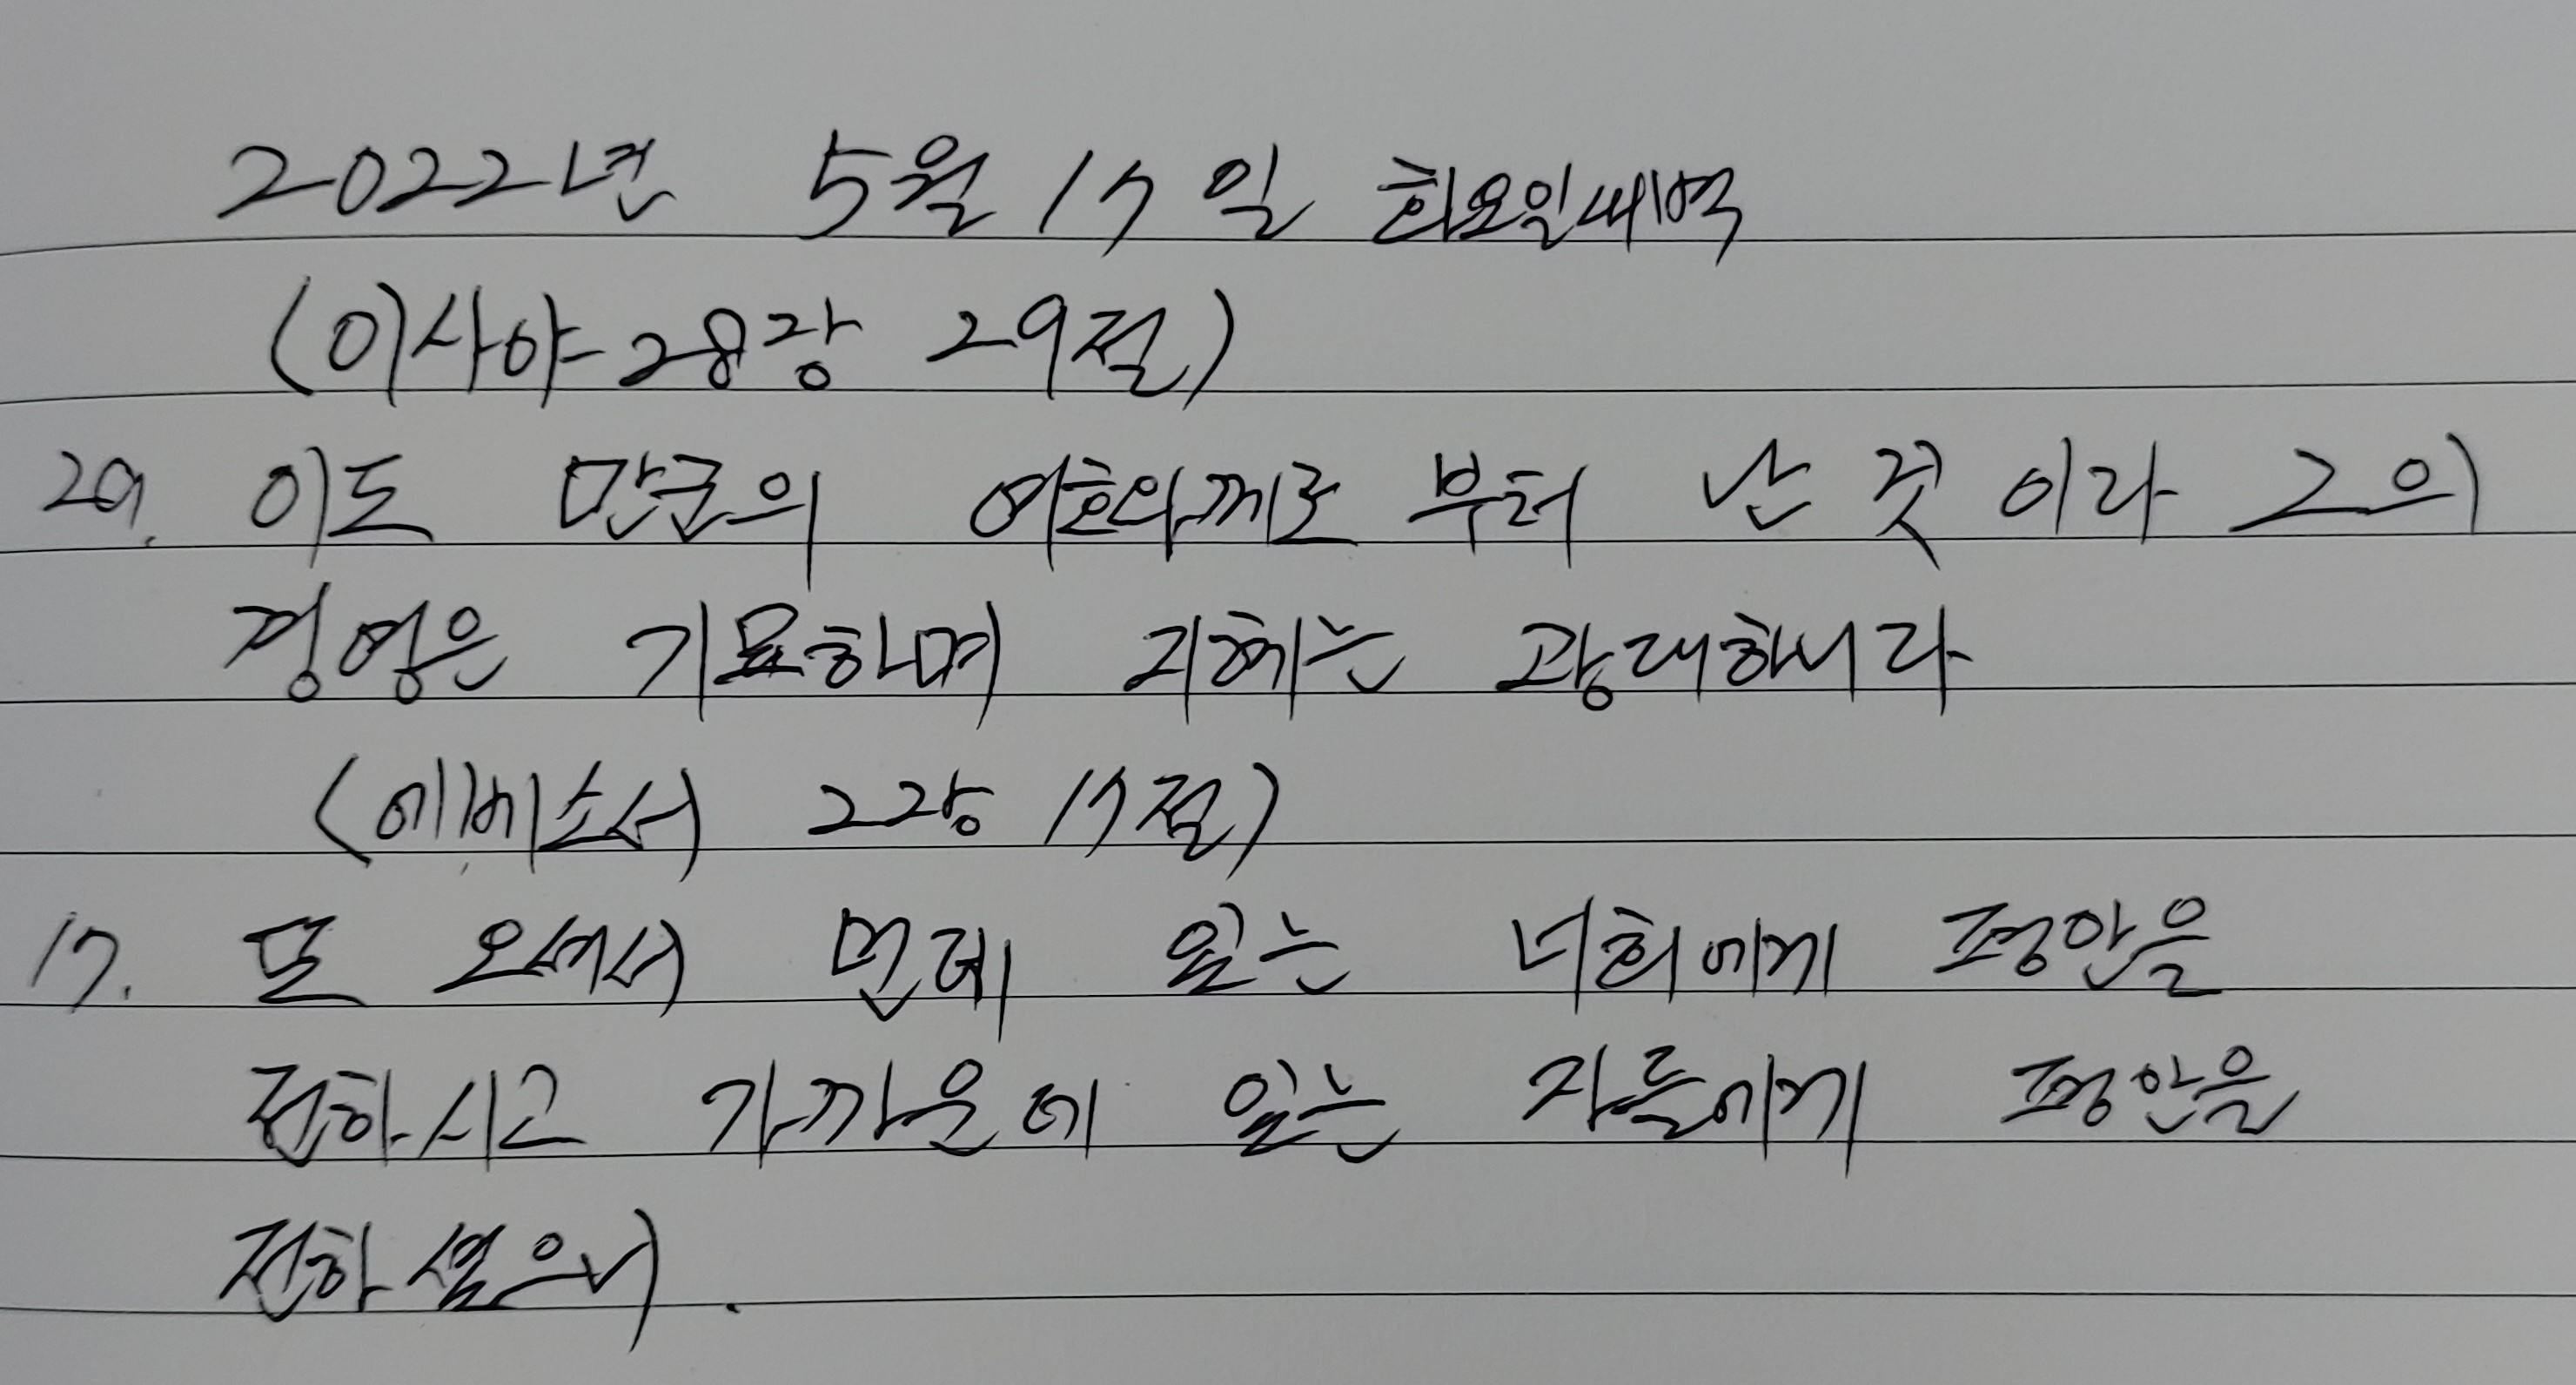 2022년 5월 17일 화요일새벽
(이사야 28장 29절)
29. 이도 만군의 여호와께로 부터 난 것 이라 그의
경영은 기묘하며 지혜는 광대하니라
(에베소서 2장 17절)
17. 또 오셔서 먼데 있는 너희에게 평안을
전하시고 가까운에 있는 자들에게 평안을
전하셨으니.